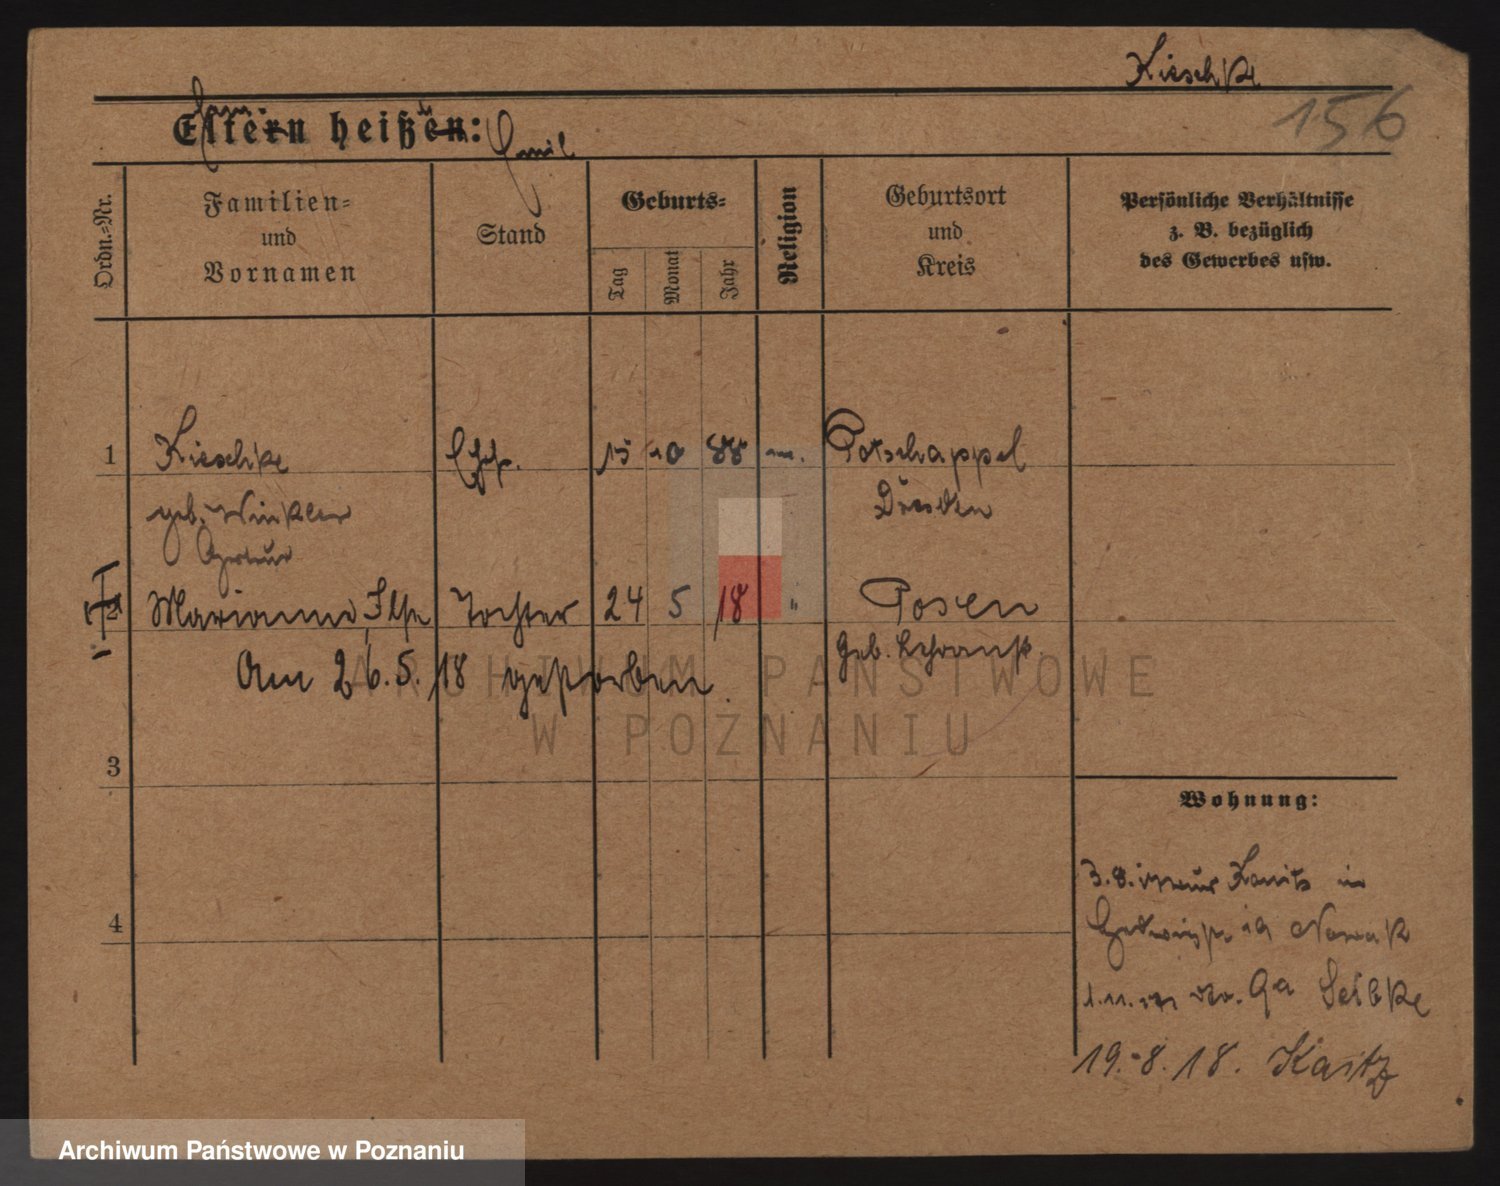 Kieschke
156
Eltern heißen: Emil
Ordn.-Nr.
Familien-
und
Vornamen
Stand
Geburts-
Tag
Monat
Jahr
Religion
Geburtsort
und
Kreis
Persönliche Verhältnisse
z. B. bezüglich
des Gewerbes usw.
1 Kieschke Ehefr. 15 10 88 Potschappel
geb. Winkler Dresden
2 Marianne Ilse Tochter 24 5 18 " Posen
Am 26.5.18 gestorben
geb.
3
Wohnung:
3.8. Kanitz in
4
19 Nowak
1.11. 9a Selbke
19.-8.18.
ARCHIWUM PAŃSTWOWE
W POZNANIU
Archiwum Państwowe w Poznaniu